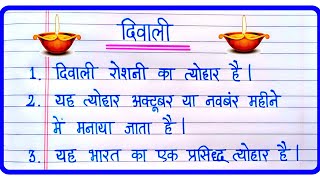 दिवाली
1. दिवाली रोशनी का त्योहार है |
2. यह त्योहार अक्टूबर या नवबंर महीने
में मनाया जाता है |
3. यह भारत का एक प्रसिद्ध त्योहार है |